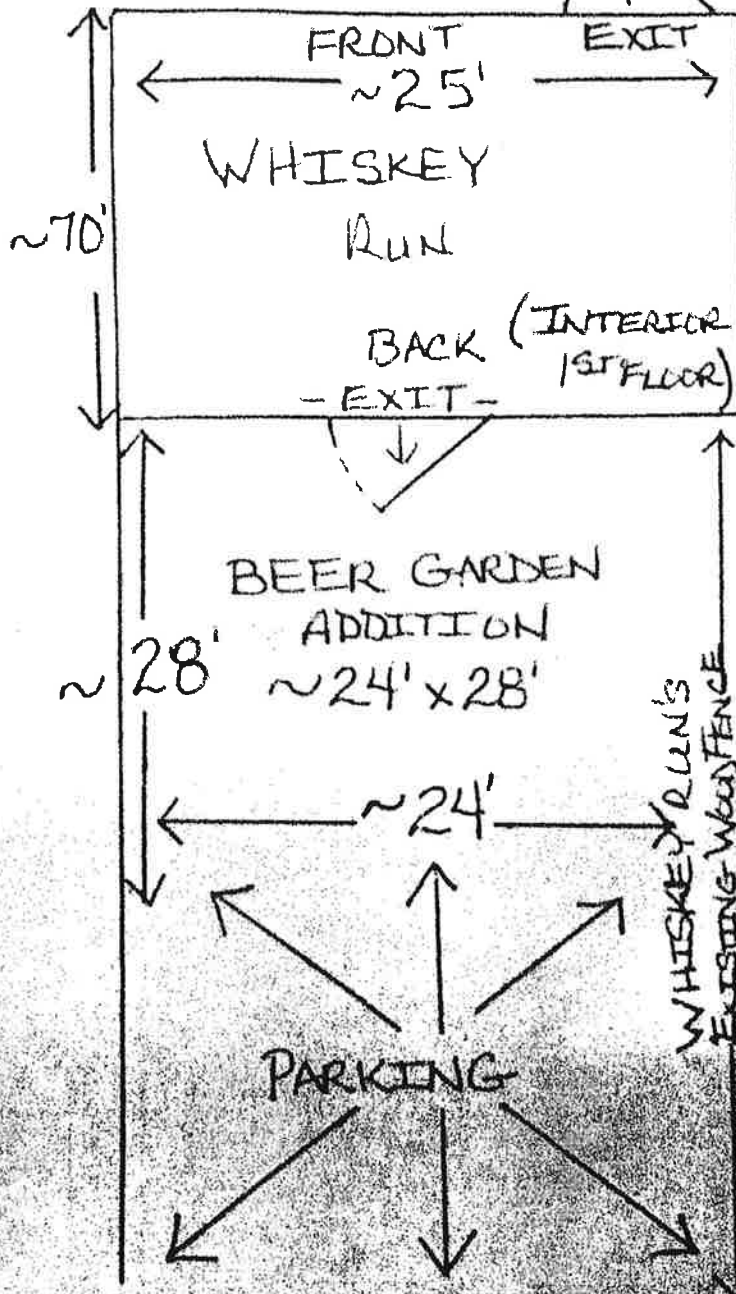 FRONT
EXIT
~25'
WHISKEY
RUN
~70'
BACK
(INTERIOR
1ST FLOOR)
- EXIT -
BEER GARDEN
ADDITION
~24' x 28'
~28'
~24'
WHISKEY RUN'S
EXISTING WOOD FENCE
PARKING